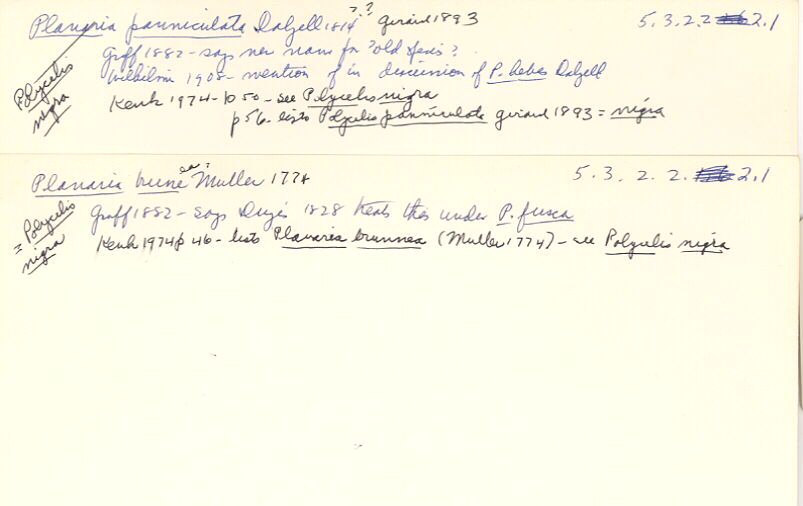 Planaria panniculata Dalzell 1814 ? ? Girard 1893 5.3.2.2 2.1
Polycelis nigra
Graff 1882 - says new name for ? old species ?
Wilhelmi 1908 - mention of in discussion of P. hebes Dalzell
Kenk 1974 - p 50 - see Polycelis nigra
p 56 - lists Polycelis panniculata Girard 1893 = nigra
Planaria brunea ? Muller 1774 5.3.2.2. 2.1
= Polycelis nigra
Graff 1882 - says Dugés 1828 treats this under P. fusca
Kenk 1974 p 46 - lists Planaria brunnea (Muller 1774) - see Polycelis nigra